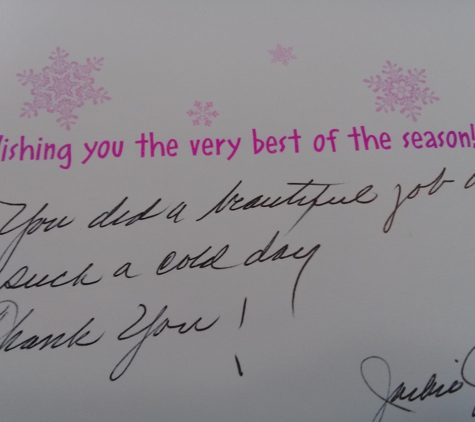 Wishing you the very best of the season!
You did a beautiful job
such a cold day
Thank You!
Jackie